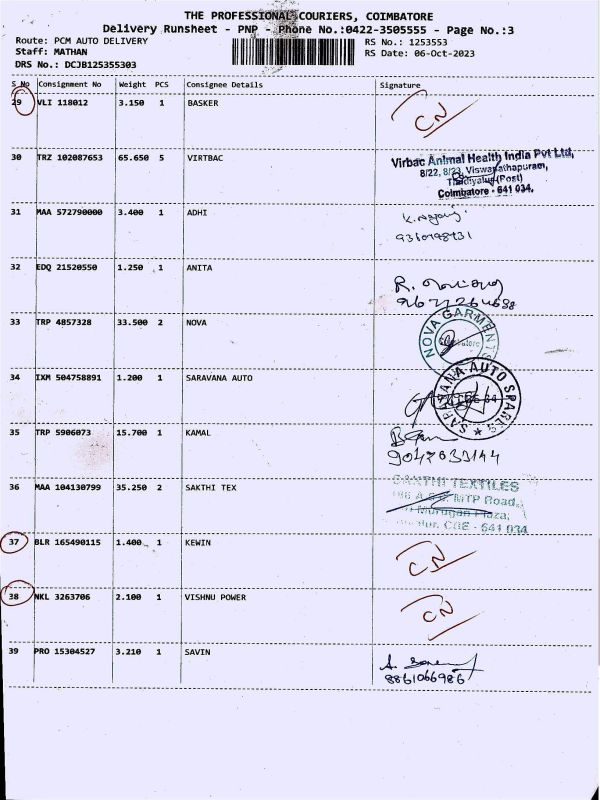 THE PROFESSIONAL COURIERS, COIMBATORE
Delivery Runsheet - PNP - Phone No.:0422-3505555 - Page No.:3
Route: PCM AUTO DELIVERY RS No.: 1253553
Staff: MATHAN RS Date: 06-Oct-2023
DRS No.: DCJB125355303
S No Consignment No Weight PCS Consignee Details Signature
29 VLI 118012 3.150 1 BASKER CN
30 TRZ 102087653 65.650 5 VIRTBAC
Virbac Animal Health India Pvt Ltd,
8/22, 8/23, Viswanathapuram,
(Post)
Coimbatore - 641 034.
31 MAA 572790000 3.400 1 ADHI
32 EDQ 21520550 1.250 1 ANITA
33 TRP 4857328 33.500 2 NOVA
NOVA GARMENTS
34 IXM 504758891 1.200 1 SARAVANA AUTO
SARAVANA AUTO SPARES
35 TRP 5906073 15.700 1 KAMAL
36 MAA 104130799 35.250 2 SAKTHI TEX
SAKTHI TEXTILES
MTP Road,
Murugan Plaza,
CBE - 641 034
37 BLR 165490115 1.400 1 KEWIN CN
38 NKL 3263706 2.100 1 VISHNU POWER CN
39 PRO 15304527 3.210 1 SAVIN
8861066986